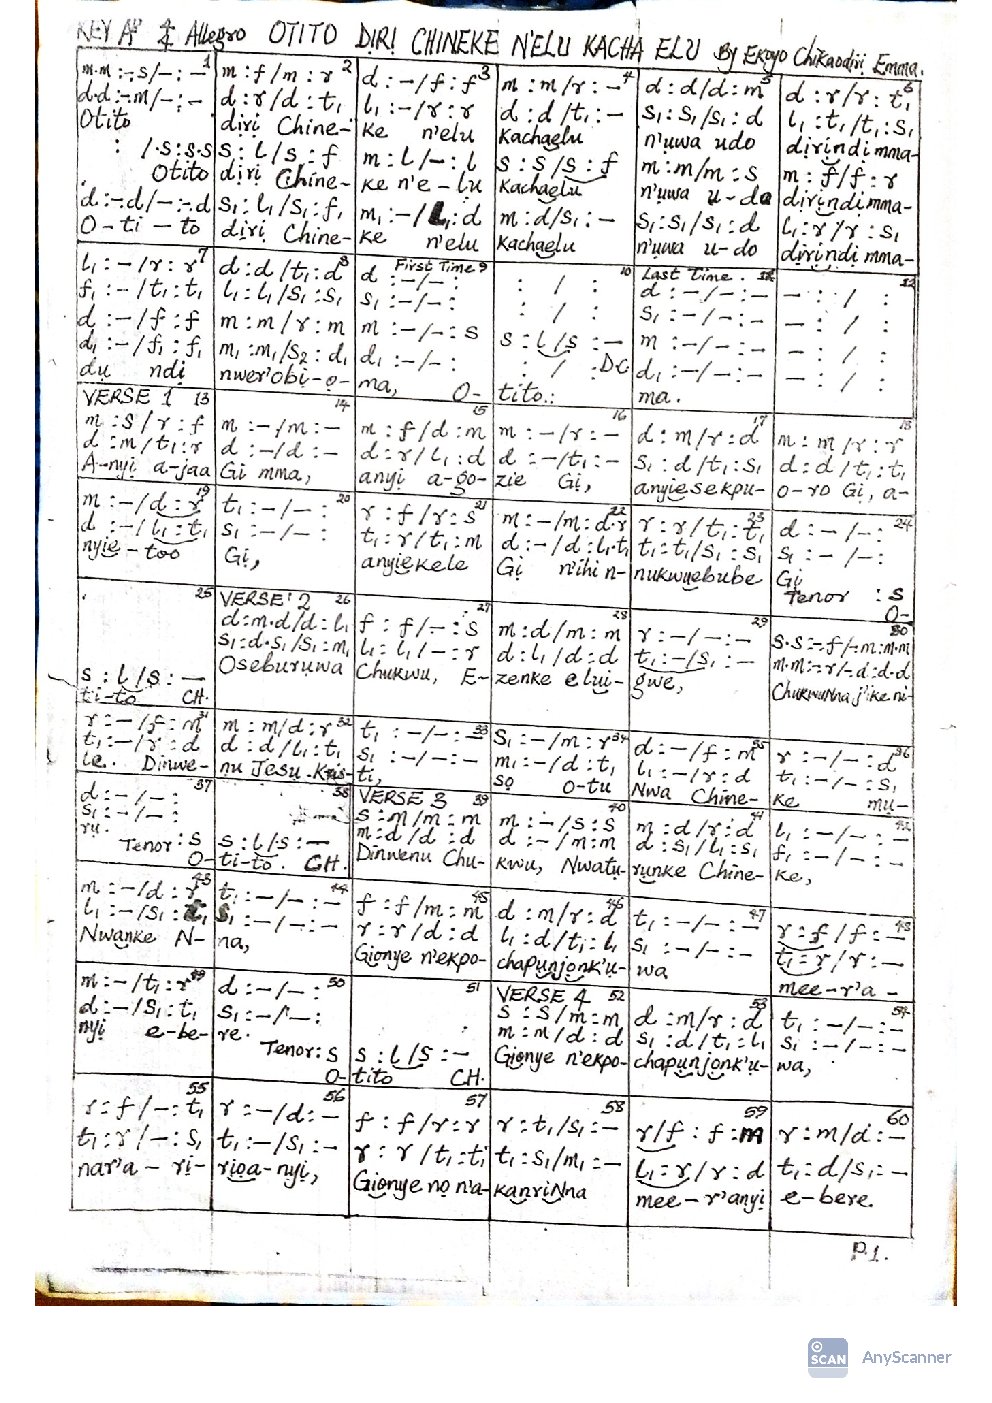 KEY Ab 4/4 Allegro OTITO DIRI CHINEKE N'ELU KACHA ELU By Ekoyo Chikaodiri Emma.
1
m·m :-,s/- : -
d·d :-,m/- : -
Otito
: /·s : s·s
Otito
d :-·d/- :-·d
O-ti-to
2
m : f/m : r
d : r/d : t₁
dịrị Chine-
s : l/s : f
dịrị Chine-
s₁ : l₁/s₁ : f₁
dịrị Chine-
3
d : -/f : f
l₁ : -/r : r
ke n'elu
m : l/- : l
ke n'e-lu
m₁ : -/l₁ : d
ke n'elu
4
m : m/r : -
d : d/t₁ : -
kachaelu
s : s/s : f
kachaelu
m : d/s₁ : -
kachaelu
5
d : d/d : m
s₁ : s₁/s₁ : d
n'ụwa udo
m : m/m : s
n'ụwa u-do
s₁ : s₁/s₁ : d
n'ụwa u-do
6
d : r/r : t₁
l₁ : t₁/t₁ : s₁
dịrịndịmma-
m : f/f : r
dịrịndịmma-
l₁ : r/r : s₁
dịrịndịmma-
7
l₁ : -/r : r
f₁ : -/t₁ : t₁
d : -/f : f
d₁ : -/f₁ : f₁
dụ ndị
8
d : d/t₁ : d
l₁ : l₁/s₁ : s₁
m : m/r : m
m₁ : m₁/s₂ : d₁
nwer'obi-ọ-
First Time 9
d : -/- :
s₁ : -/- :
m : -/- : s
d₁ : -/- :
ma, O-
10
: / :
: / :
s : l/s : -
: / : DC
tito.
Last Time. 11
d : -/- : -
s₁ : -/- : -
m : -/- : -
d₁ : -/- : -
ma.
12
- : / :
- : / :
- : / :
- : / :
VERSE 1 13
m : s/r : f
d : m/t₁ : r
A-nyị a-jaa
14
m : -/m : -
d : -/d : -
Gị mma,
15
m : f/d : m
d : r/l₁ : d
anyị a-gọ-
16
m : -/r : -
d : -/t₁ : -
zie Gị,
17
d : m/r : d
s₁ : d/t₁ : s₁
anyịesekpu-
18
m : m/r : r
d : d/t₁ : t₁
o-ro Gị, a-
19
m : -/d : r
d : -/l₁ : t₁
nyịe-too
20
t₁ : -/- :
s₁ : -/- :
Gị,
21
r : f/r : s
t₁ : r/t₁ : m
anyịekele
22
m : -/m : d·r
d : -/d : l₁·t₁
Gị n'ihi n-
23
r : r/t₁ : t₁
t₁ : t₁/s₁ : s₁
nukwuebube
24
d : -/- :
s₁ : -/- :
Gị
Tenor : s
O-
25
s : l/s : -
ti-to CH.
VERSE 2 26
d : m·d/d : l₁
s₁ : d·s₁/s₁ : m₁
Oseburuwa
27
f : f/- : s
l₁ : l₁/- : r
Chukwu, E-
28
m : d/m : m
d : l₁/d : d
zenke elui-
29
r : -/- : -
t₁ : -/s₁ : -
gwe,
30
s·s :-f/-·m : m·m
m·m :-r/-·d : d·d
ChukwuNna j'ike ni-
31
r : -/f : m
t₁ : -/r : d
le. Dinwe-
32
m : m/d : r
d : d/l₁ : t₁
nu Jesu Kris-
33
t₁ : -/- : -
s₁ : -/- : -
ti,
34
s₁ : -/m : r
m₁ : -/d : t₁
sọ O-tu
35
d : -/f : m
l₁ : -/r : d
Nwa Chine-
36
r : -/- : d
t₁ : -/- : s₁
ke mu-
37
d : -/- :
s₁ : -/- :
rụ.
Tenor : s
O-
38
s : l/s : -
ti-to. CH.
VERSE 3 39
s : m/m : m
m : d/d : d
Dinwenu Chu-
40
m : -/s : s
d : -/m : m
kwu, Nwatụ-
41
m : d/r : d
d : s₁/l₁ : s₁
rụnke Chine-
42
l₁ : -/- : -
f₁ : -/- : -
ke,
43
m : -/d : r
l₁ : -/s₁ : t₁
Nwanke N-
44
t₁ : -/- : -
s₁ : -/- : -
na,
45
f : f/m : m
r : r/d : d
Gịonye n'ekpo-
46
d : m/r : d
l₁ : d/t₁ : l₁
chapụnjọnk'ụ-
47
t₁ : -/- : -
s₁ : -/- : -
wa
48
r : f/f : -
t₁ : r/r : -
mee-r'a-
49
m : -/t₁ : r
d : -/s₁ : t₁
nyị e-be-
50
d : -/- :
s₁ : -/- :
re.
Tenor : s
O-
51
s : l/s : -
tito CH.
VERSE 4 52
s : s/m : m
m : m/d : d
Gịonye n'ekpo-
53
d : m/r : d
s₁ : d/t₁ : l₁
chapụnjọnk'ụ-
54
t₁ : -/- : -
s₁ : -/- : -
wa,
55
r : f/- : t₁
t₁ : r/- : s₁
nar'a-rị-
56
r : -/d : -
t₁ : -/s₁ : -
rịọa-nyị,
57
f : f/r : r
r : r/t₁ : t₁
Gịonye nọ n'a-
58
r : t₁/s₁ : -
t₁ : s₁/m₁ : -
kanrịNna
59
r/f : f : m
l₁ : r/r : d
mee-r'anyị
60
r : m/d : -
t₁ : d/s₁ : -
e-bere.
P.1.
SCAN AnyScanner